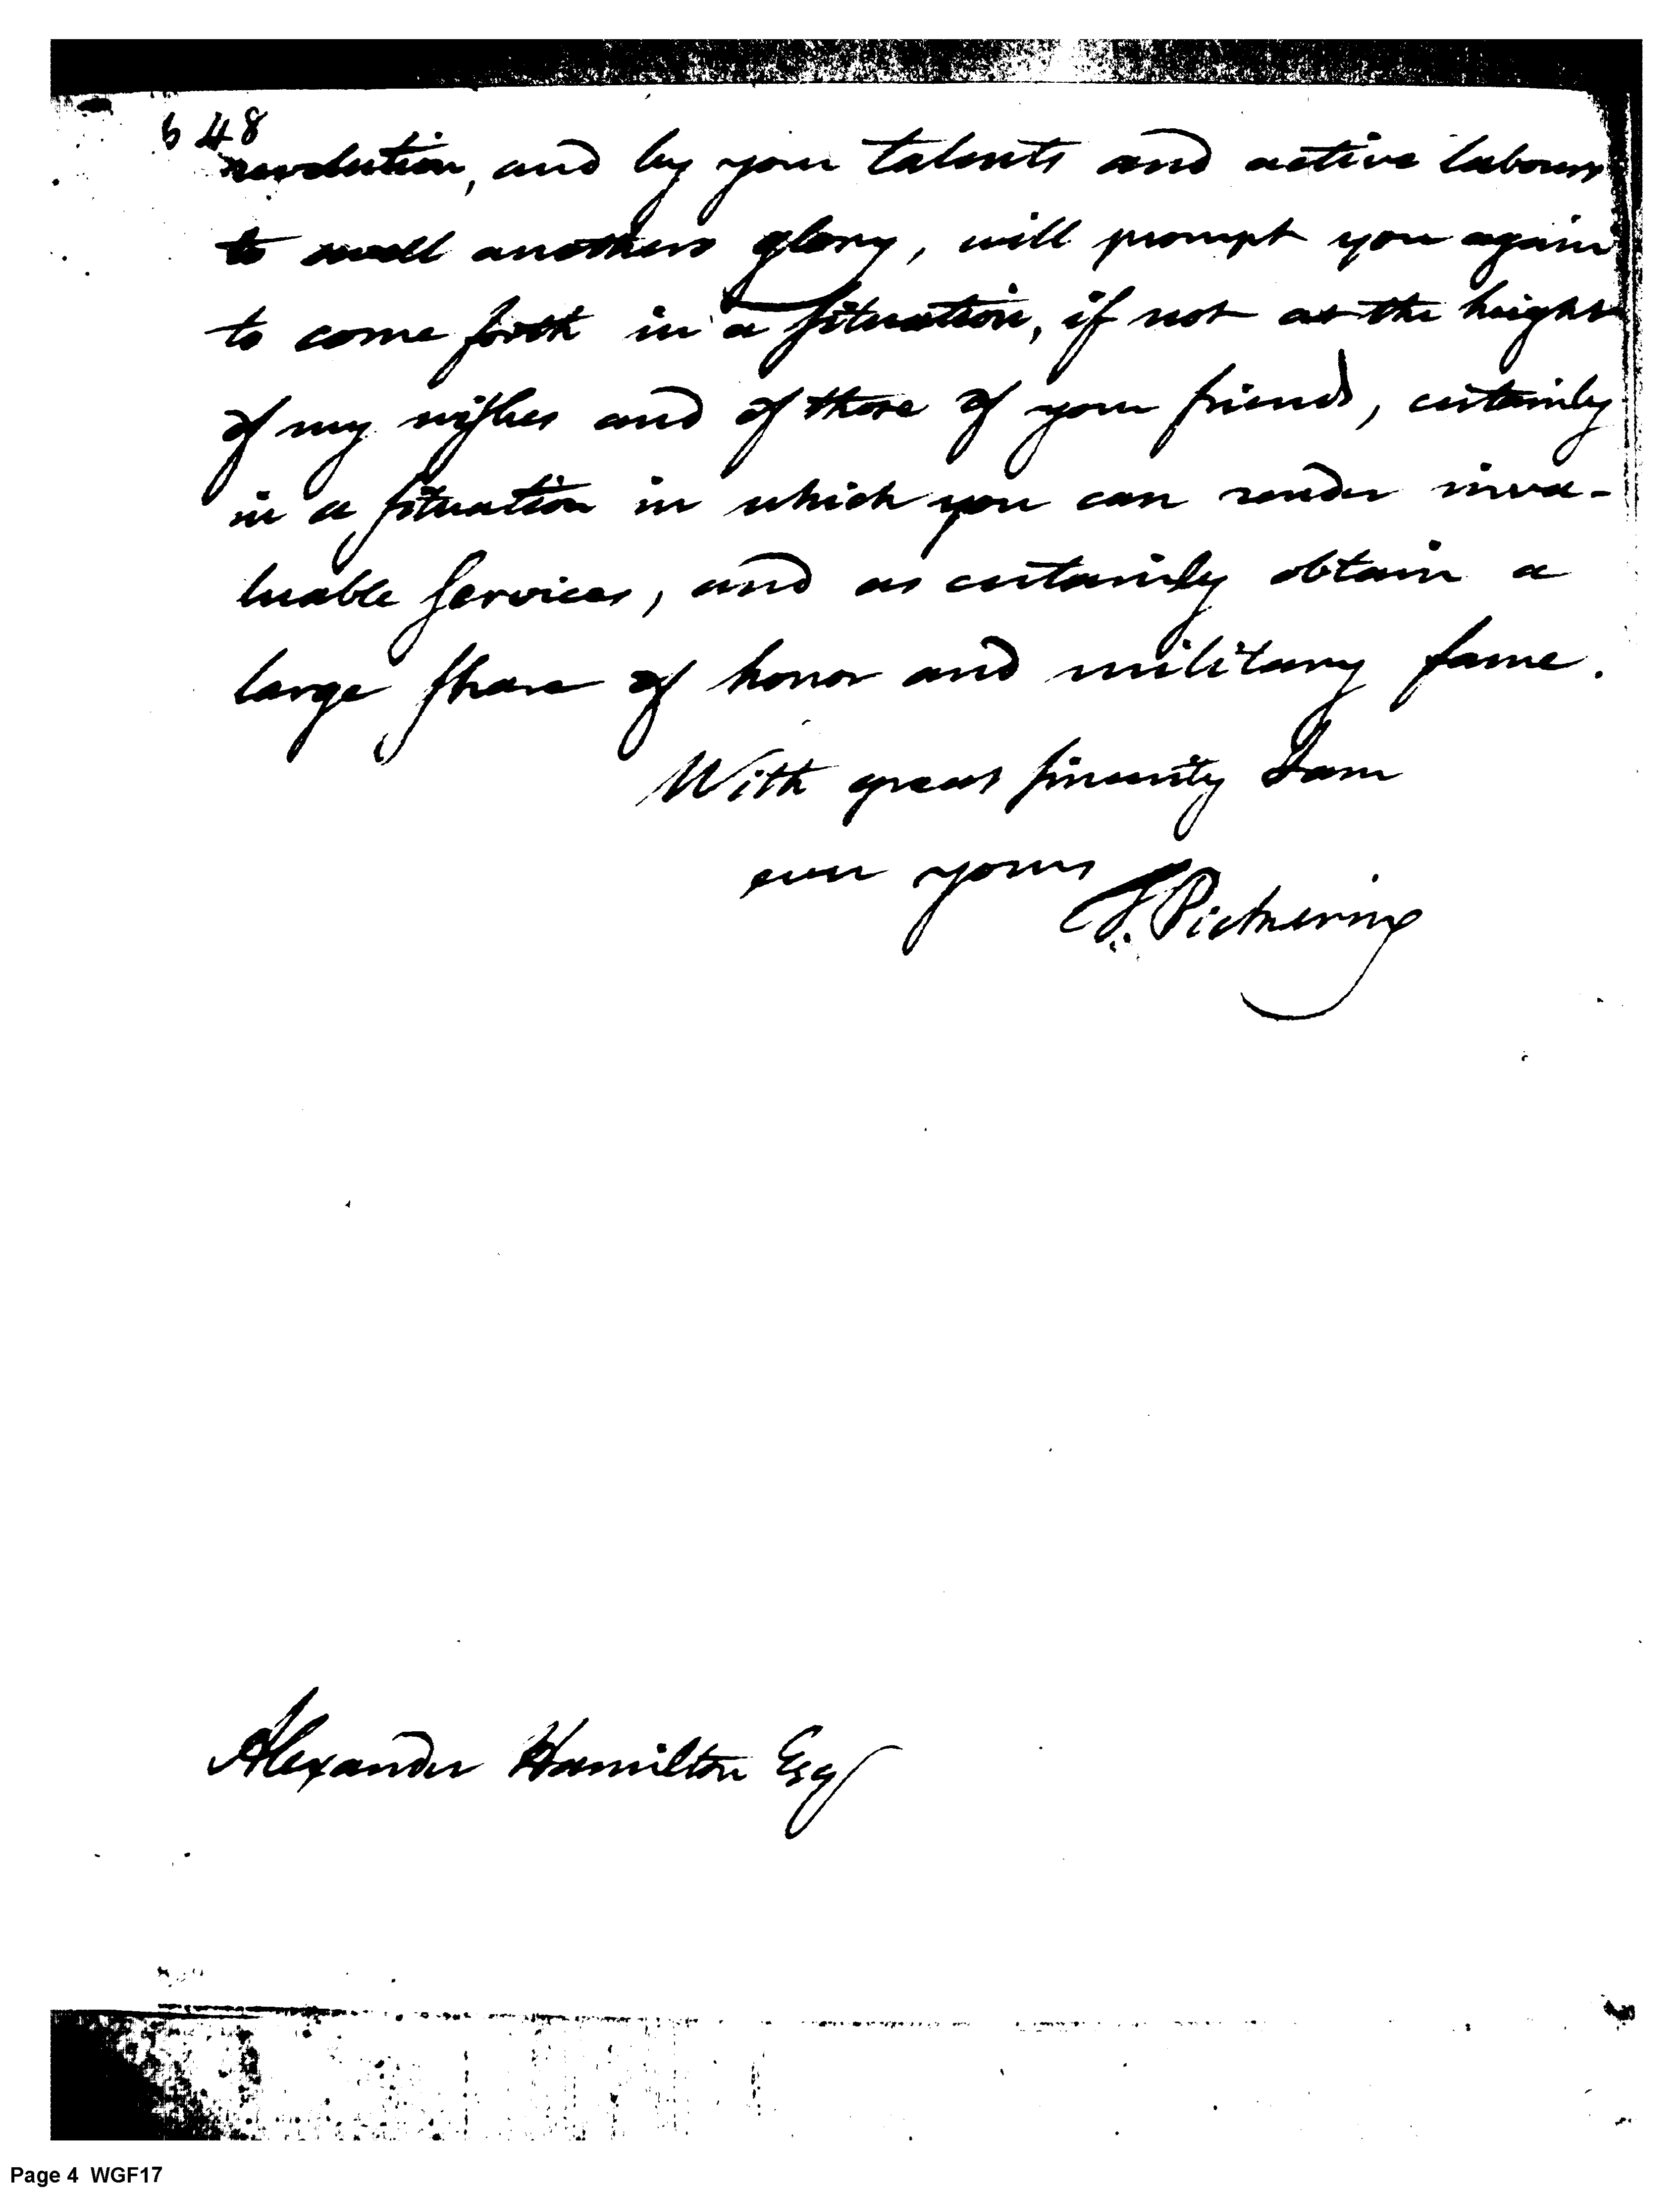 648
revolution, and by your talents and active labours
to swell anothers glory, will prompt you again
to come forth in a situation, if not at the height
of my wishes and of those of your friends, certainly
in a situation in which you can render inva-
luable services, and as certainly obtain a
large share of honor and military fame.
With great sincerity I am
ever yours
T. Pickering
Alexander Hamilton Esq
Page 4 WGF17